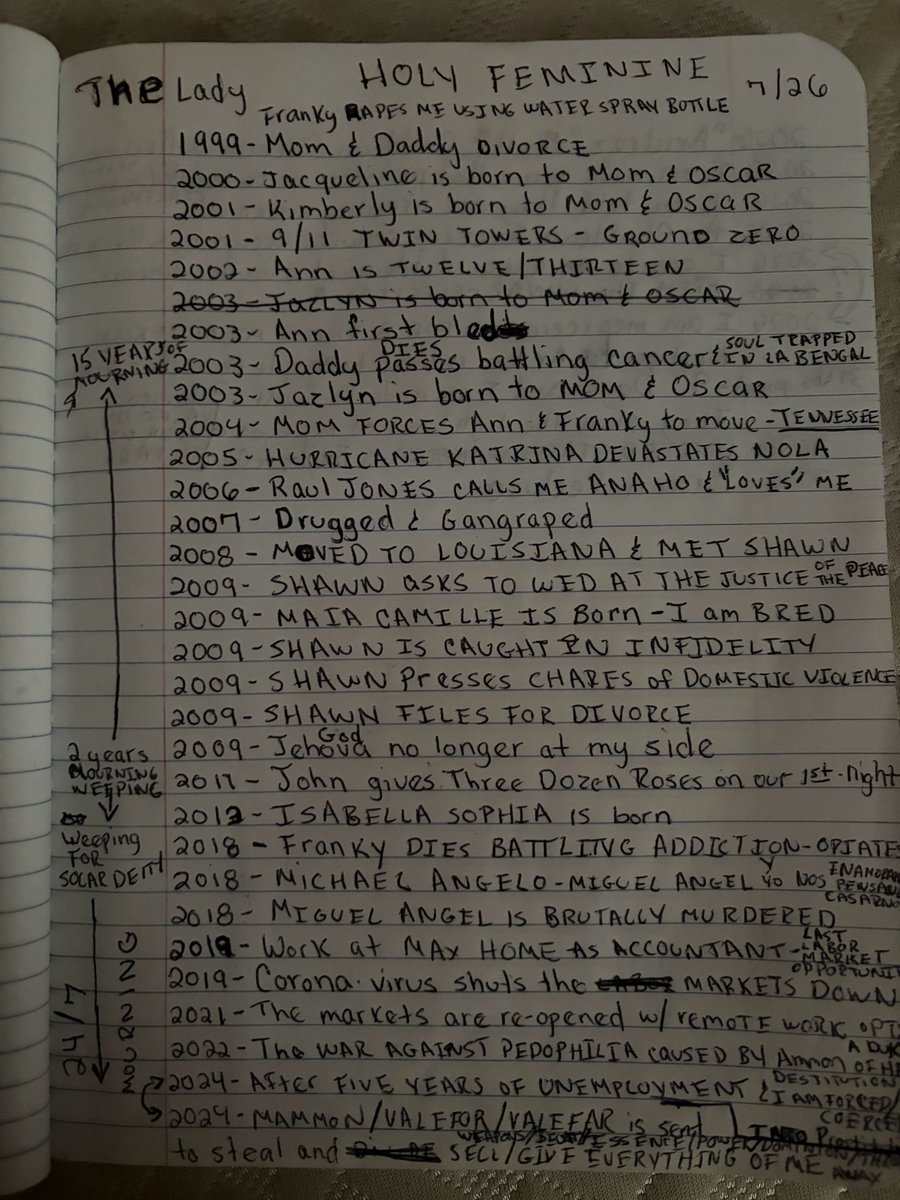 HOLY FEMININE
The Lady 7/26
Franky RAPES ME USING WATER SPRAY BOTTLE
1999 - Mom & Daddy DIVORCE
2000 - Jacqueline is born to Mom & OSCAR
2001 - Kimberly is born to Mom & OSCAR
2001 - 9/11 TWIN TOWERS - GROUND ZERO
2002 - Ann is TWELVE/THIRTEEN
2003 - JAZLYN is born to Mom & OSCAR
2003 - Ann first bled
15 YEARS OF MOURNING
2003 - Daddy DIES passes battling cancer & SOUL TRAPPED IN LA BENGAL
2003 - Jazlyn is born to MOM & OSCAR
2004 - MOM FORCES Ann & Franky to move - TENNESSEE
2005 - HURRICANE KATRINA DEVASTATES NOLA
2006 - Raul JONES CALLS ME ANAHO & "LOVES" ME
2007 - Drugged & Gangraped
2008 - MOVED TO LOUISIANA & MET SHAWN
2009 - SHAWN asks TO WED AT THE JUSTICE OF THE PEACE
2009 - MAIA CAMILLE IS Born - I am BRED
2009 - SHAWN IS CAUGHT IN INFIDELITY
2009 - SHAWN Presses CHARES of DOMESTIC VIOLENCE
2009 - SHAWN FILES FOR DIVORCE
2009 - Jehova God no longer at my side
2 years MOURNING WEEPING
2011 - John gives Three Dozen Roses on our 1st night
2012 - ISABELLA SOPHIA is born
Weeping FOR SOLAR DEITY
2018 - Franky DIES BATTLING ADDICTION - OPIATES
2018 - MICHAEL ANGELO - MIGUEL ANGEL y yo NOS
2018 - MIGUEL ANGEL IS BRUTALLY MURDERED
2019 - Work at MAX HOME AS ACCOUNTANT - LAST LABOR MARKET
2019 - Corona virus shuts the MARKETS DOWN
2021 - The markets are re-opened w/ remote WORK
2022 - The WAR AGAINST PEDOPHILIA caused BY Amnon OF
24/7 MOURNING
2024 - AFTER FIVE YEARS OF UNEMPLOYMENT & DESTITUTION I AM FORCED/
2024 - MAMMON/VALEFOR/VALEFAR is sent
to steal and SELL/GIVE EVERYTHING OF ME AWAY